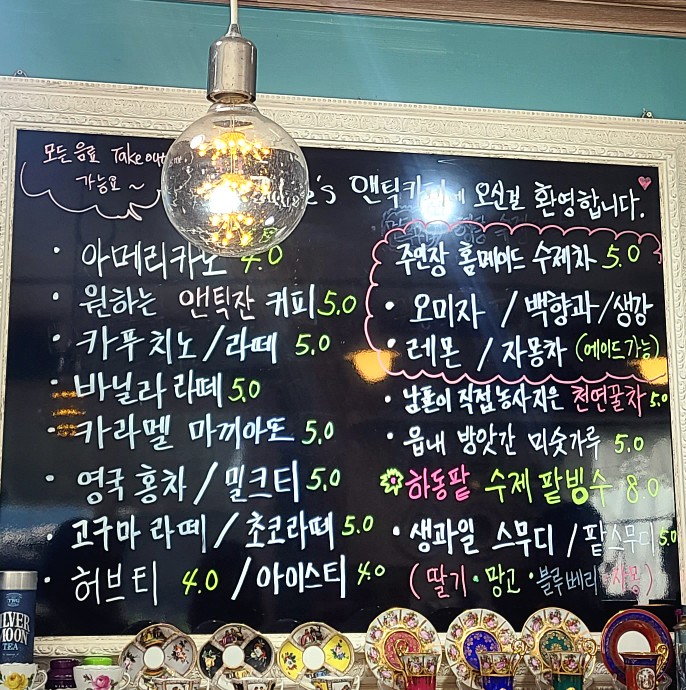 모든음료 Take out
가능요~
's 앤틱카페에 오신걸 환영합니다.
· 아메리카노 4.0
· 원하는 앤틱잔 커피 5.0
· 카푸치노/라떼 5.0
· 바닐라 라떼 5.0
· 카라멜 마끼아또 5.0
· 영국 홍차/밀크티 5.0
· 고구마 라떼/초코라떼 5.0
· 허브티 4.0 /아이스티 4.0
주인장 홈메이드 수제차 5.0
· 오미자 /백향과/생강
· 레몬 /자몽차 (에이드가능)
· 남편이 직접농사지은 천연꿀차 5.0
· 읍내 방앗간 미숫가루 5.0
하동팥 수제 팥빙수 8.0
· 생과일 스무디 /팥스무디 5.0
(딸기·망고·블루베리·자몽)
TWG
SILVER
MOON
TEA